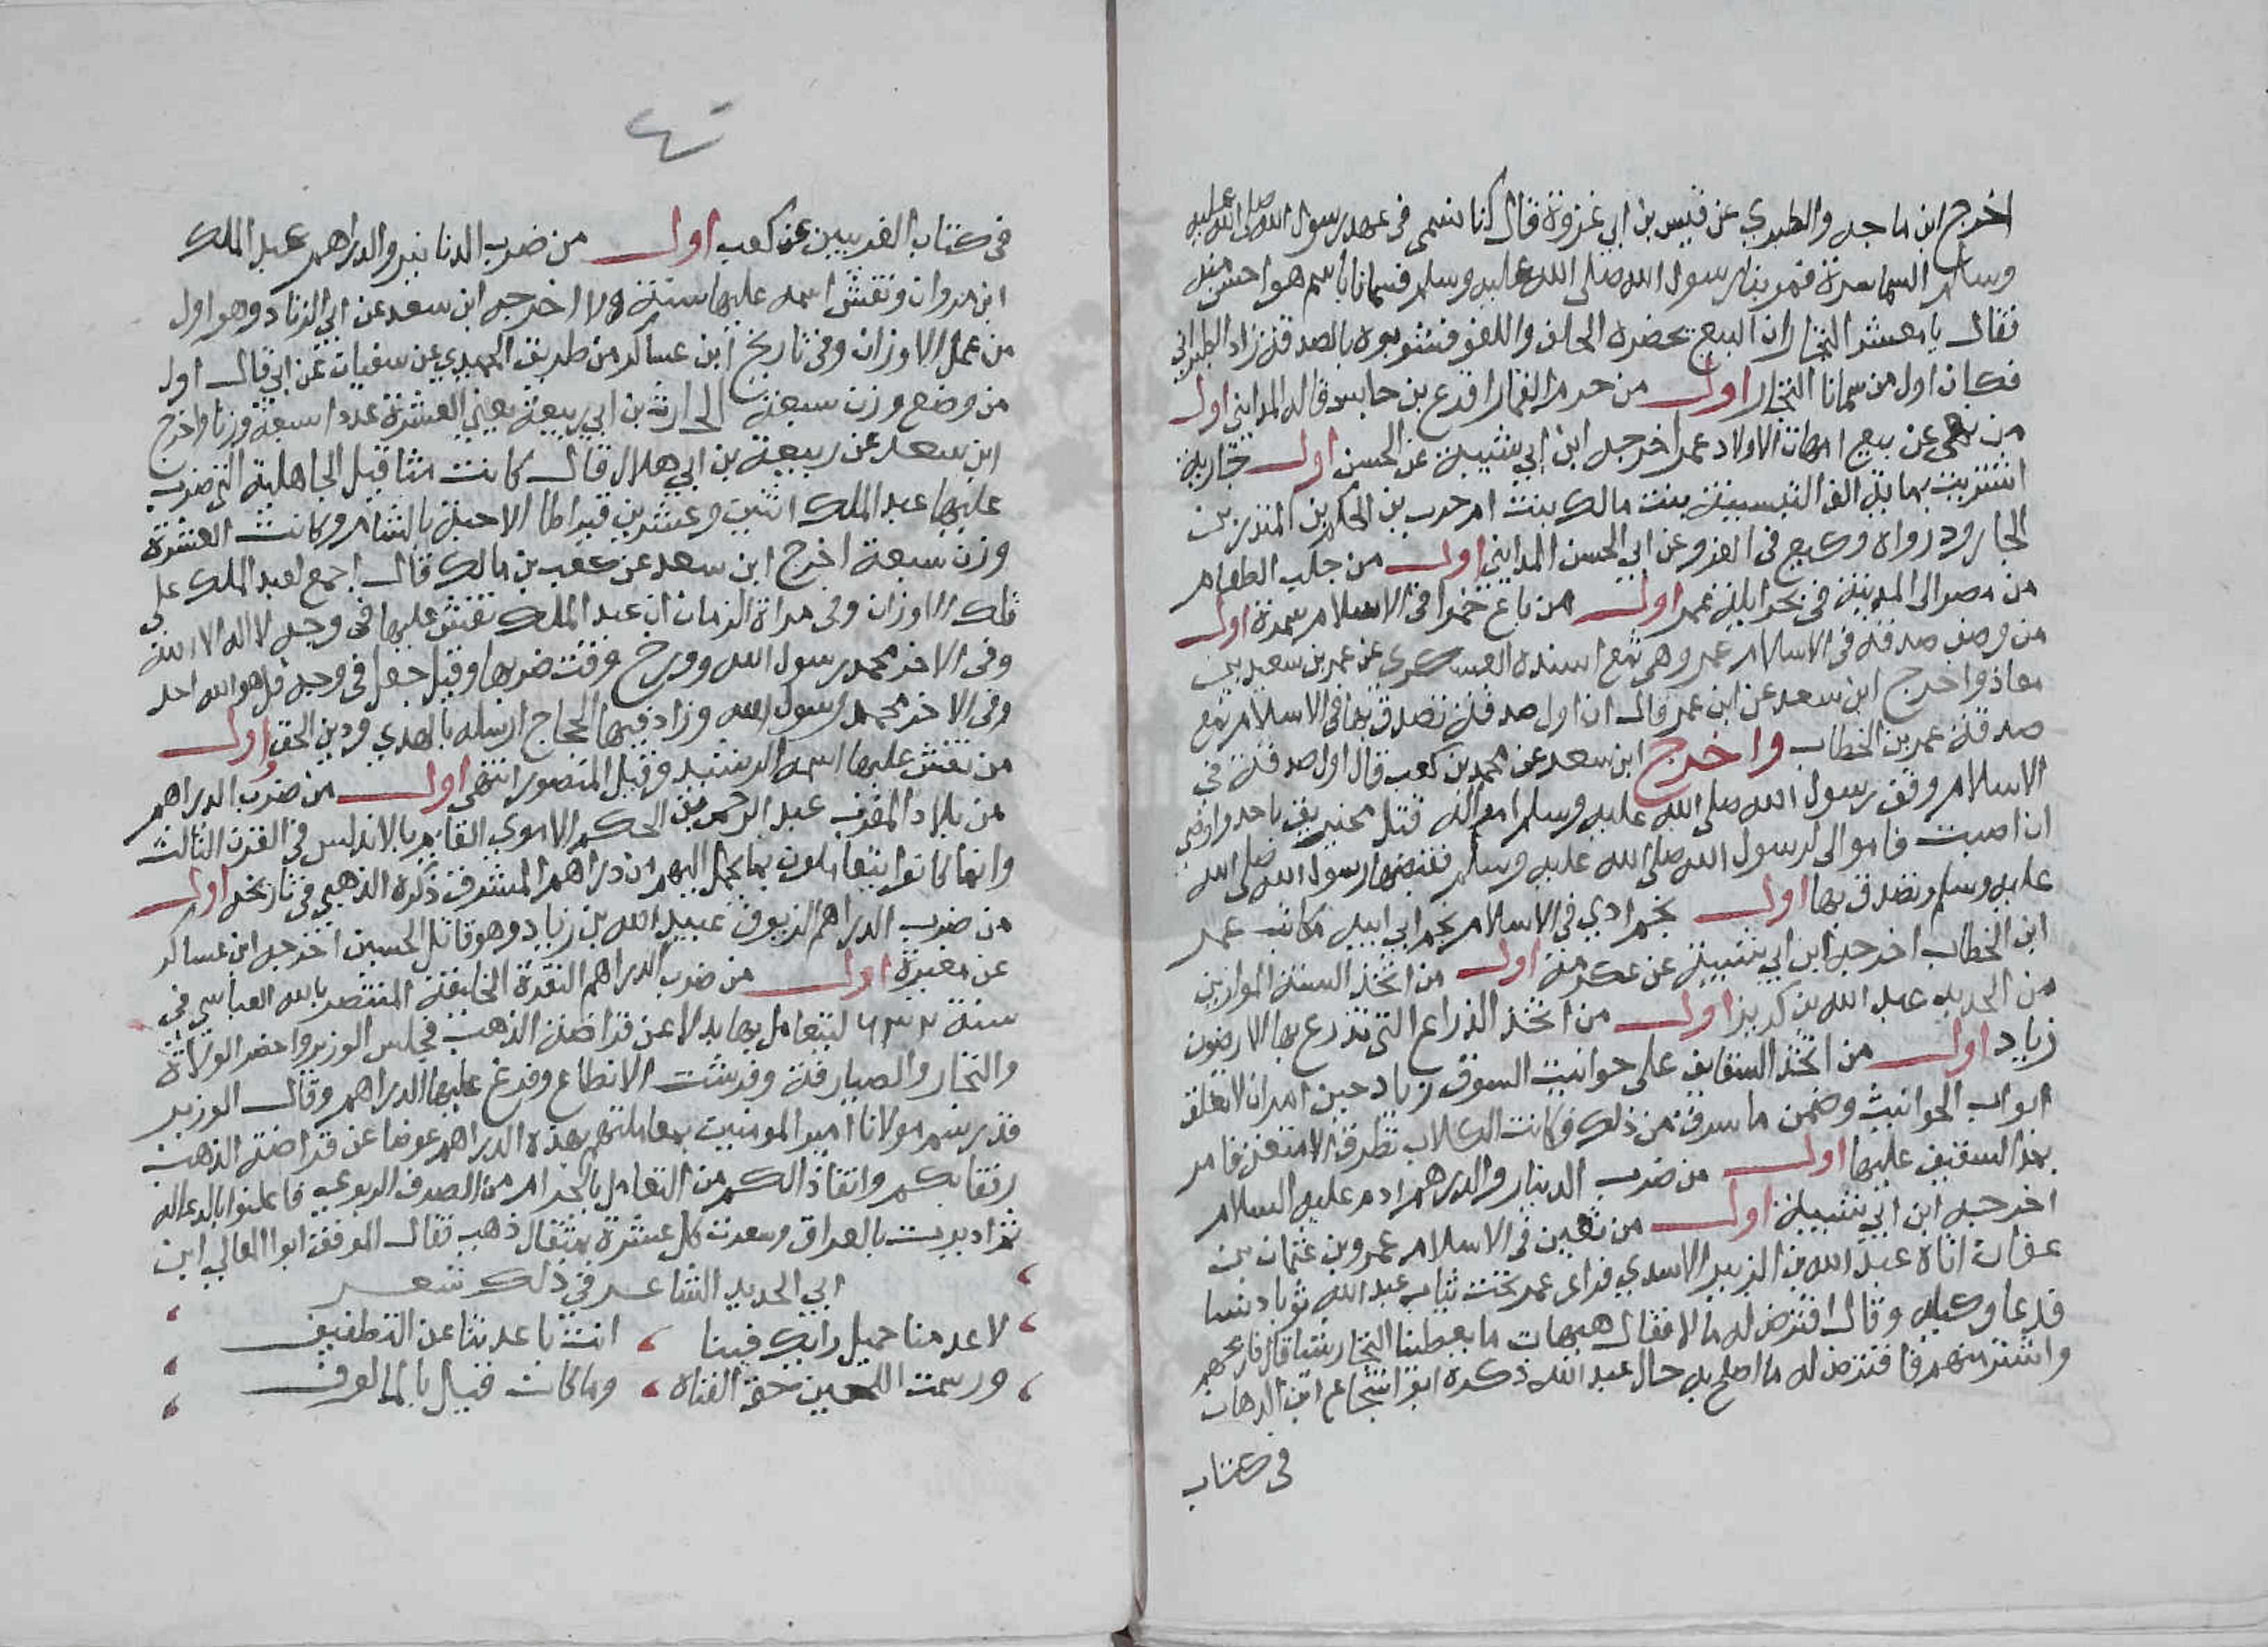 اخرج ابن ماجه والطبري عن قيس بن ابي غرزة قال كنا نسمى في عهد رسول الله صلى الله عليه
وسلم السماسرة فمر بنا رسول الله صلى الله عليه وسلم فسمانا باسم هو احسن منه
فقال يا معشر التجار ان البيع يحضره الحلف واللغو فشوبوه بالصدقة زاد الطبراني
فكان اول من سمانا التجار اول من حرم القمار اقرع بن حابس قاله المدايني اول
من نهى عن بيع امهات الاولاد عمر اخرجه ابن ابي شيبة عن الحسن اول جارية
اشتريت بماية الف بنت مالك بنت ام حرب بن الحكم بن المنذر بن
الجارود رواه وكيع في الغرر عن ابي الحسن المدايني اول من جلب الطعام
من مصر الى المدينة في بحر ايلة عمر اول من باع خمرا في الاسلام سمرة اول
من وقف صدقة في الاسلام عمر وهي ثمغ اسنده العسكري عن عمر بن سعيد بن
معاذ واخرج ابن سعد عن ابن عمر قال ان اول صدقة تصدق بها في الاسلام ثمغ
صدقة عمر بن الخطاب واخرج ابن سعد عن محمد بن كعب قال اول صدقة في
الاسلام وقف رسول الله صلى الله عليه وسلم امواله قتل مخيريق باحد واوصى
ان اصبت فاموالى لرسول الله صلى الله عليه وسلم فقبضها رسول الله صلى الله
عليه وسلم وتصدق بها اول نجم ادي في الاسلام نجم ابي اميه مكاتب عمر
ابن الخطاب اخرجه ابن ابي شيبة عن عكرمة اول من اتخذ السنة الموازين
من الحديد عبد الله بن كريز اول من اتخذ الذراع التي تذرع بها الارضون
زياد اول من اتخذ السقايف على حوانيت السوق زياد حين امر ان لا تغلق
ابواب الحوانيت وضمن ما سرق من ذلك وكانت الكلاب تطرق الامتعة فامر
بهذا السقيف عليها اول من ضرب الدينار والدرهم ادم عليه السلام
اخرجه ابن ابي شيبة اول من تعين في الاسلام عمرو بن عثمان بن
عفان اتاه عبد الله بن الزبير الاسدي فراى عمر تحت ثياب عبد الله ثوبا دنسا
فدعا وكيله وقال اقترض له مالا فقال هيهات ما يعطينا التجار شيا قال فاربحهم
واشتر منهم فاقترض له ما اصلح به حال عبد الله ذكره ابو شجاع ابن الدهان
في كتاب
في كتاب الغريبين عن كعب اول من ضرب الدنانير والدراهم عبد الملك
ابن مروان ونقش اسمه عليها سنة اخرجه ابن سعد عن ابي الزناد وهو اول
من عمل الاوزان وفي تاريخ ابن عساكر من طريق الحميدي عن سفيان عن ابي قال اول
من وضع وزن سبعة الحارث بن ابي ربيعة يعني العشرة عددا سبعة وزنا واخرج
ابن سعد عن ربيعة بن ابي هلال قال كانت مثاقيل الجاهلية التي ضرب
عليها عبد الملك اثنين وعشرين قيراطا الا حبة بالشام وكانت العشرة
وزن سبعة اخرج ابن سعد عن كعب بن مالك قال اجمع لعبد الملك على
تلك الاوزان وفي مراة الزمان ان عبد الملك نقش عليها في وجه لا اله الا الله
وفي الاخر محمد رسول الله وورخ وقت ضربها وقيل جعل في وجه قل هو الله احد
وفي الاخر محمد رسول الله وزاد فيها الحجاج ارسله بالهدي ودين الحق اول
من نقش عليها اسمه الرشيد وقيل المنصور انتهى اول من ضرب الدراهم
من بلاد المغرب عبد الرحمن بن الحكم الاموي القايم بالاندلس في القرن الثالث
وانما كانوا يتعاملون بما يحمل اليهم من دراهم المشرق ذكره الذهبي في تاريخه اول
من ضرب الدراهم الزيوف عبيد الله بن زياد وهو قاتل الحسين اخرجه ابن عساكر
عن مغيرة اول من ضرب الدراهم النقرة الخليفة المنتصر بالله العباسي في
سنة ٦٣٢ ليتعامل بها بدلا عن قراضة الذهب فجلس الوزير واحضر الولاة
والتجار والصيارفة وفرشت الانطاع وفرغ عليها الدراهم وقال الوزير
قد رسم مولانا امير المومنين بمعاملتهم بهذه الدراهم عوضا عن قراضة الذهب
رفقا بكم وانقاذا لكم من التعامل بالحرام من الصرف الربوي فاعلنوا بالدعا له
ثم اديرت بالعراق وسعرت كل عشرة بمثقال ذهب فقال الموفق ابو المعالي ابن
ابي الحديد الشاعر في ذلك شعر
لا عدمنا جميل رايك فينا ، انت باعدتنا عن التطفيف
ورسمت اللجين حتى الفناه ، وما كان قبل بالمالوف